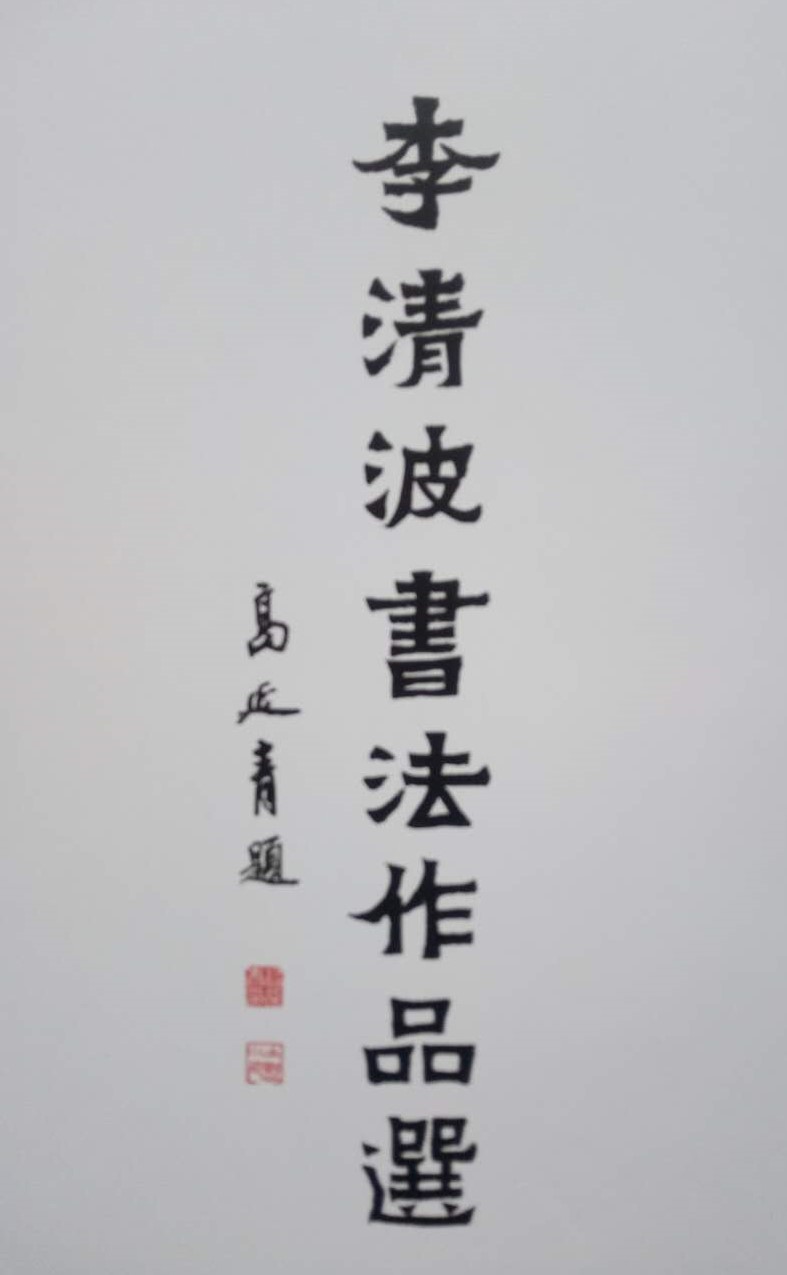 李清波書法作品選
高延青題